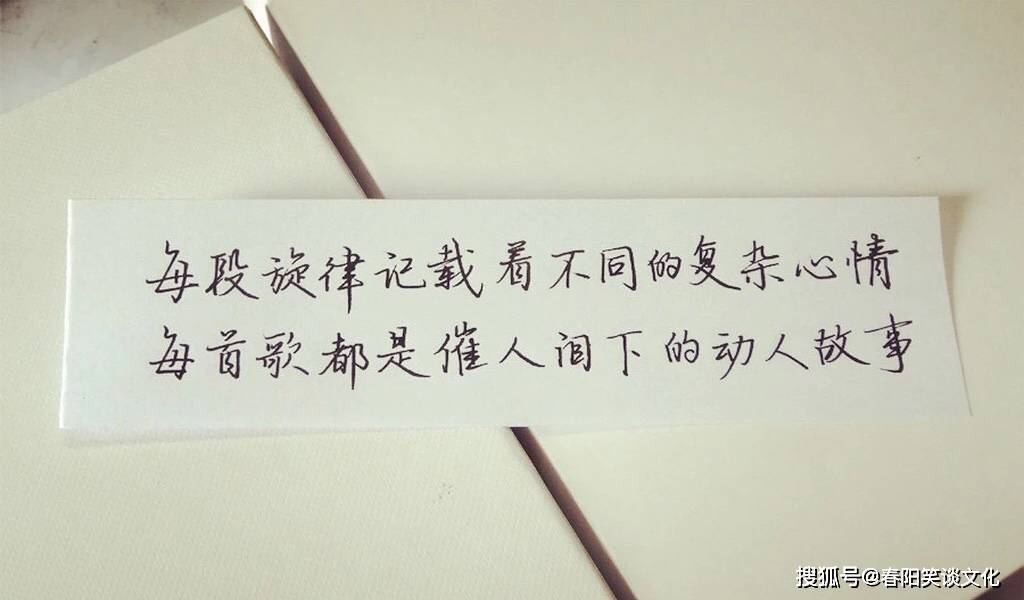 每段旋律记载着不同的复杂心情
每首歌都是催人泪下的动人故事
搜狐号@春阳笑谈文化